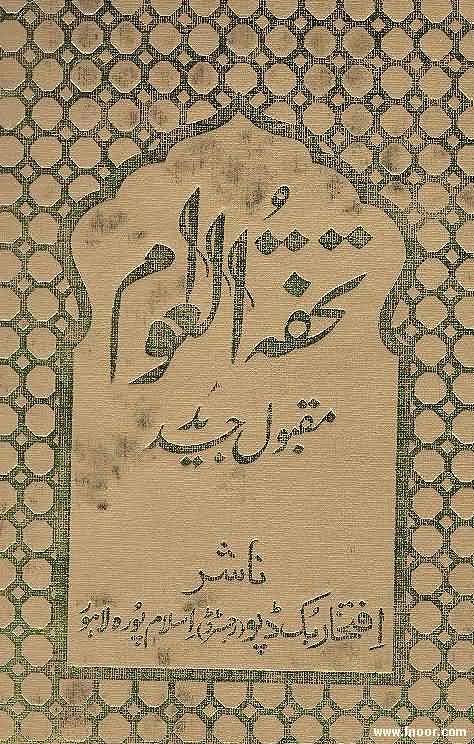 تحفۃ العوام
مقبول جدید
ناشر
افتخار بک ڈپو (رجسٹرڈ) اسلام پورہ لاہور
www.fnoor.com